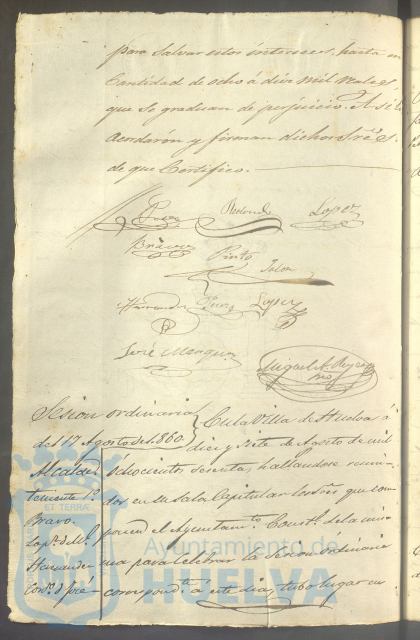 para salvar estos intereses, hasta en
Cantidad de ocho á diez mil reales
que se graduan de perjuicio. Asi lo
acordaron y firman dichos Sres.
de que Certifico.
Redondo Lopez
Pinto
Hernandez Perez Lopez
José Marquez
Miguel A. Reyes
Srio
Sesion ordinaria
del 17 Agosto de 1.860.
En la Villa de Huelva á
diez y siete de Agosto de mil
Alcalde
ochocientos sesenta, hallandose reuni-
Teniente 1º
dos en su Sala Capitular los Sres. que com-
Bravo.
ponen el Ayuntamto. Constl. de la mis-
Hernandez
ma para celebrar la Sesion ordinaria
correspondte. á este dia, tubo lugar en
ET TERRÆ
Ayuntamiento de
HUELVA